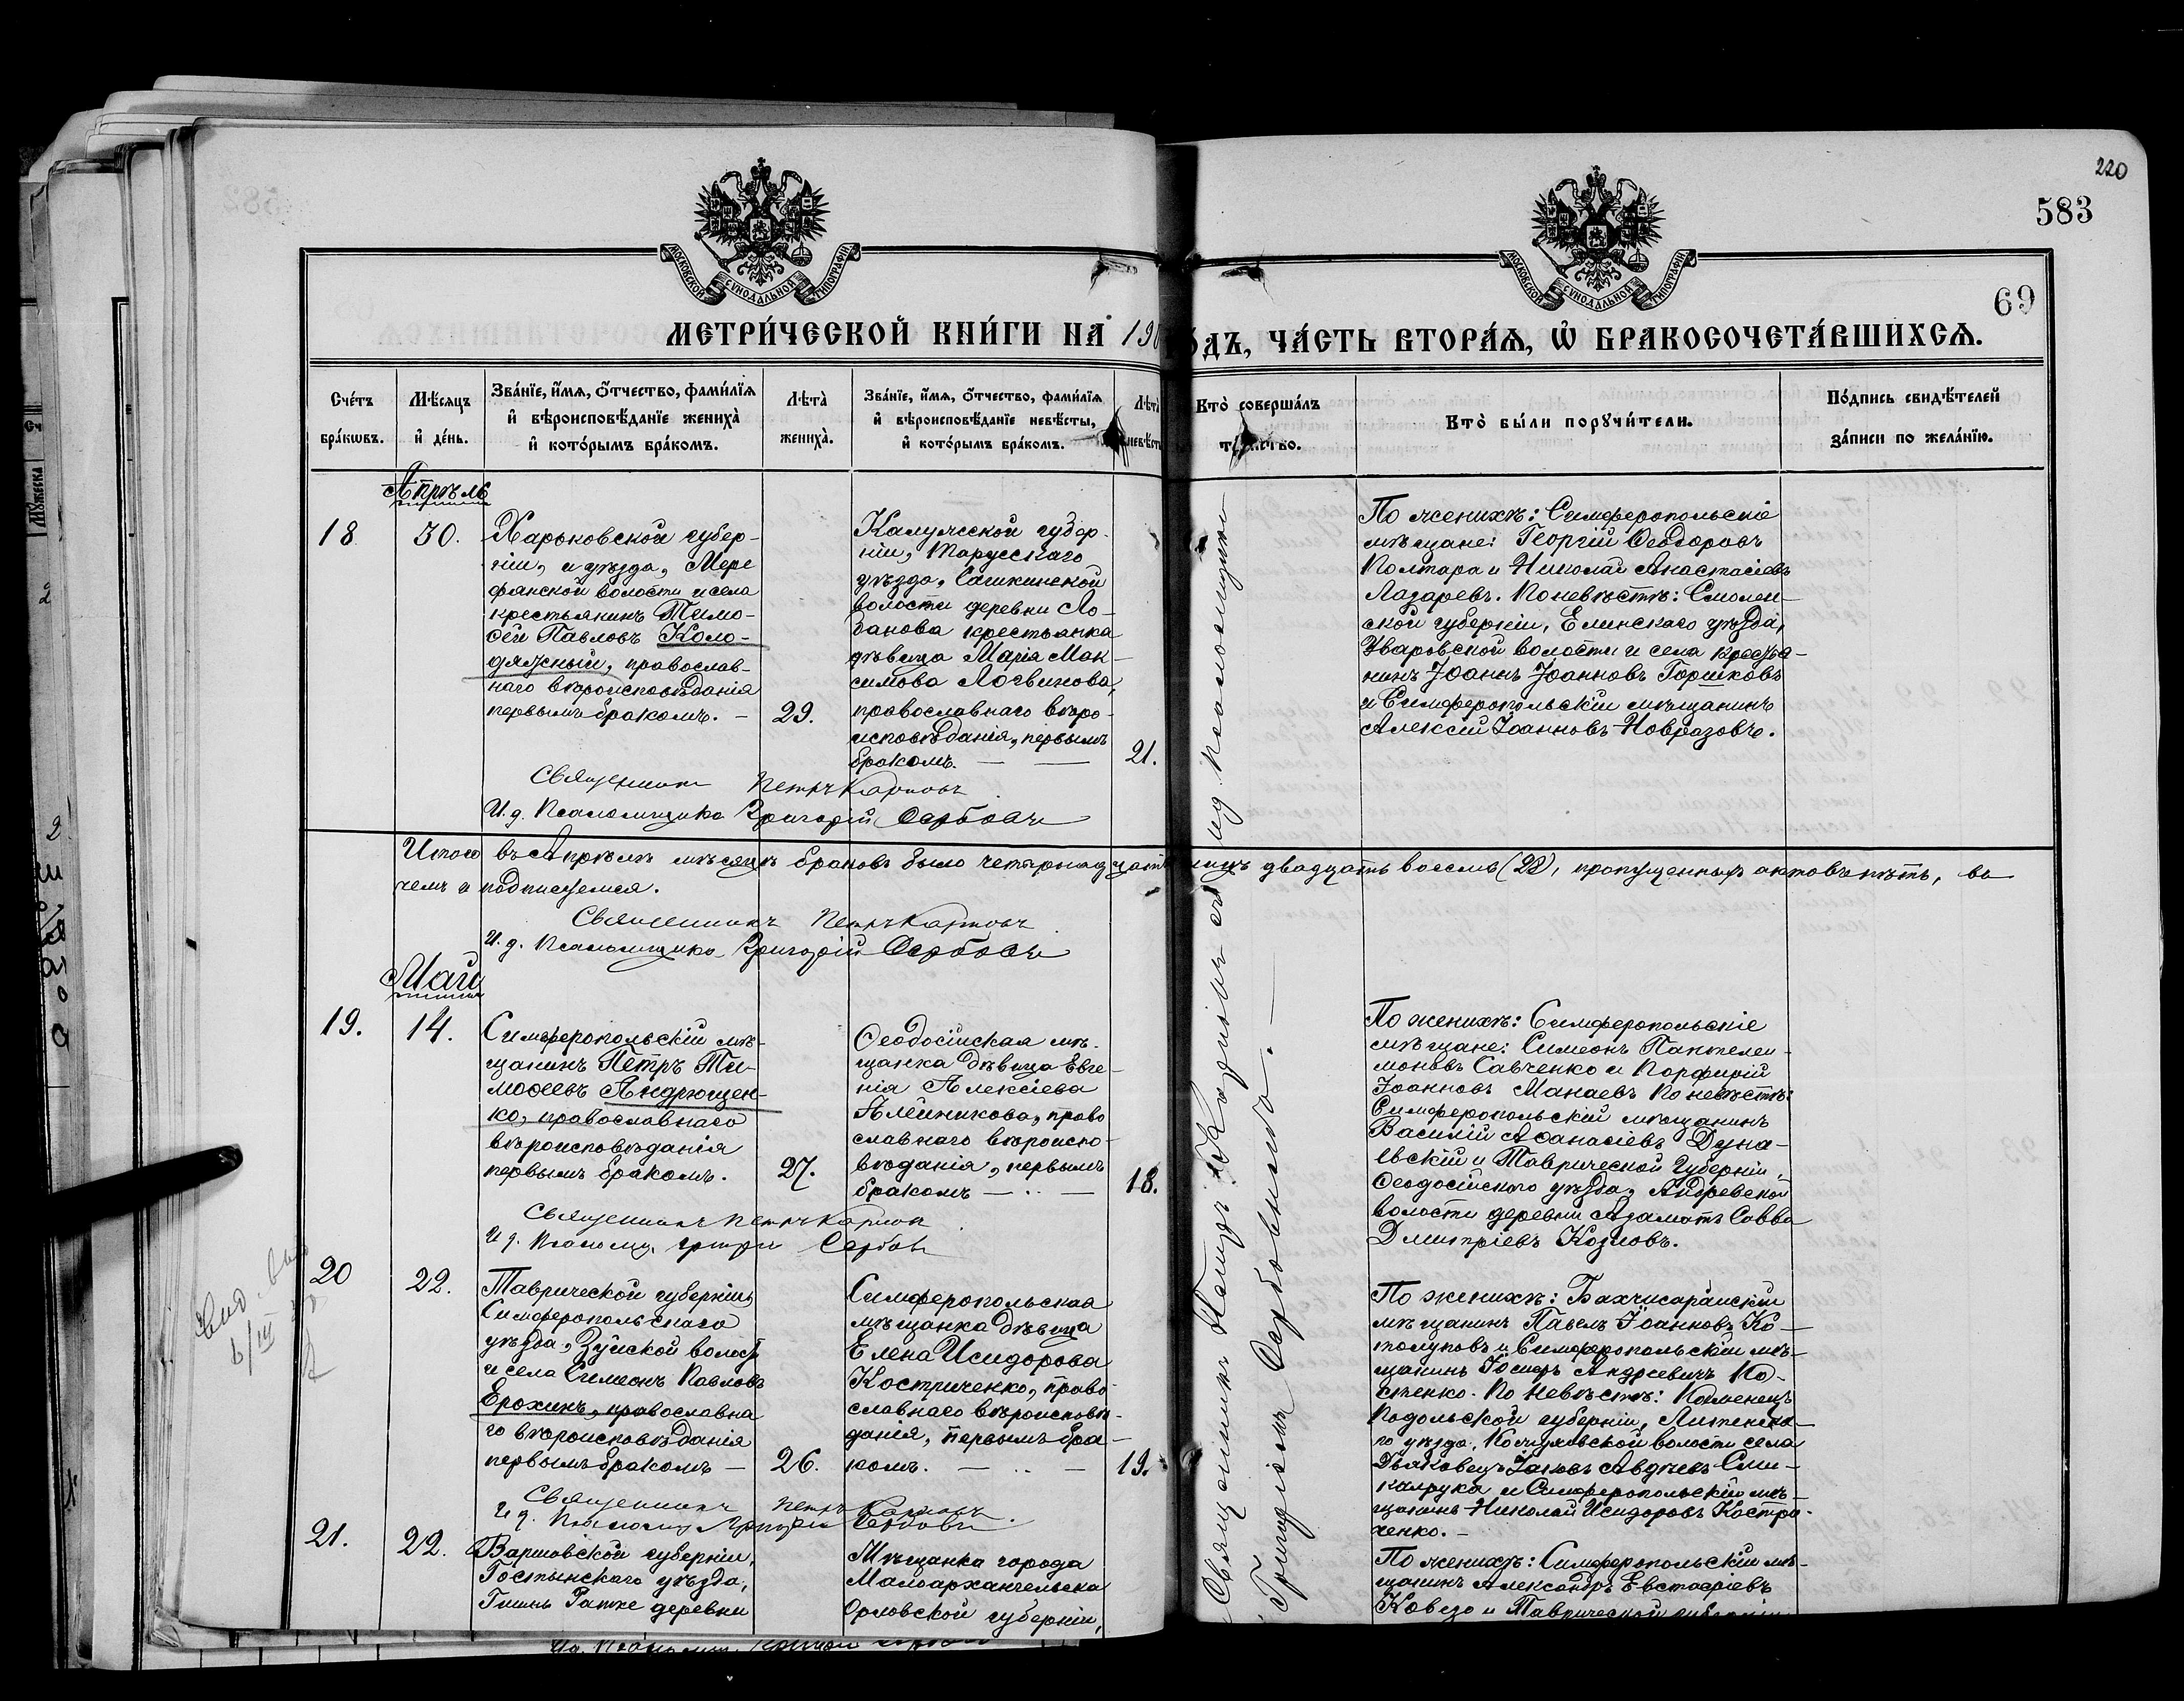 220
583
69
МОСКОВСКОЙ СѴНОДАЛЬНОЙ ТИПОГРАФІИ
МОСКОВСКОЙ СѴНОДАЛЬНОЙ ТИПОГРАФІИ
МЕТРИ́ЧЕСКОЙ КНИ́ГИ НА 190
ОДЪ, ЧА́СТЬ ВТОРА́Я, Ѡ БРАКОСОЧЕТА́ВШИХСЯ.
Сче́тъ бра́кѡвъ.
Мѣ́сяцъ и де́нь.
Зва́нїе, и́мя, о́тчество, фами́лїя и вѣроисповѣ́данїе жениха̀ и кото́рымъ бра́комъ.
Лѣта̀ жениха̀.
Зва́нїе, и́мя, о́тчество, фами́лїя и вѣроисповѣ́данїе невѣ́сты, и кото́рымъ бра́комъ.
Лѣта̀ невѣст
Кто̀ соверша́лъ
Кто̀ бы́ли порꙋчи́тели.
По́дпись свидѣ́телей за́писи по жела́нїю.
Апрѣль
18
30.
Харьковской губер-
ніи, и уѣзда, Мере
фянской волости и села
крестьянинъ Тимо-
ѳей Павловъ Коло-
дяжный, православ-
наго вѣроисповѣданія
первымъ бракомъ. –
29.
Калужской губер-
ніи, Тарусскаго
уѣзда, Сашкинской
волости деревни Ло-
банова крестьянка
дѣвица Марія Мак-
симова Логвинова,
православнаго вѣро-
исповѣданія, первымъ
бракомъ. — —
21.
По женихѣ: Симферопольскіе
мѣщане: Георгій Ѳеодоровъ
Полтара и Николай Анастасіевъ
Лазаревъ. По невѣстѣ: Смолен-
ской губерніи, Елинскаго уѣзда,
Уваровской волости и села крестья-
нинъ Іоаннъ Іоанновъ Горшковъ
и Симферопольскій мѣщанинъ
Алексій Іоанновъ Новразовъ.
Священникъ Петръ Карповъ
И. д. Псаломщика Григорій Сербовъ
Итого въ Апрѣлѣ мѣсяцѣ браковъ было четырнадцать лицъ двадцать восемь (28), пропущенныхъ актовъ нѣтъ, въ
чемъ и подписуемся.
Священникъ Петръ Карповъ
И. д. Псаломщика Григорій Сербовъ
Май
19.
14.
Симферопольскій мѣ-
щанинъ Петръ Ти-
моѳеевъ Андрющен-
ко, православнаго
вѣроисповѣданія
первымъ бракомъ.
27.
Ѳеодосійская мѣ-
щанка дѣвица Евге-
нія Алексіева
Алейникова, право
славнаго вѣроиспо-
вѣданія, первымъ
бракомъ — .. —
18.
По женихѣ: Симферопольскіе
мѣщане: Симеонъ Пантелеи-
моновъ Савченко и Порфирій
Іоанновъ Манаевъ По невѣстѣ:
Симферопольскій мѣщанинъ
Василій Аѳанасіевъ Дуна-
евскій и Таврической губерніи,
Ѳеодосійскаго уѣзда, Андреевской
волости деревни Азаматъ Савва
Дмитріевъ Козловъ.
Священникъ Петръ Карпов
И д. Псаломщ. Сербовъ
20
22.
Таврической губерніи,
Симферопольскаго
уѣзда, Зуйской волост
и села Симеонъ Павловъ
Ерохинъ, православна
го вѣроисповѣданія
первымъ бракомъ —
26.
Симферопольская
мѣщанка дѣвица
Елена Исидорова
Костриченко, право-
славнаго вѣроисповѣ-
данія, первымъ бра-
комъ. — .. —
19.
По женихѣ: Бахчисарайскій
мѣщанинъ Павелъ Іоанновъ Ко-
толуповъ и Симферопольскій мѣ-
щанинъ Іосифъ Андреевичъ Ко-
стенко. По невѣстѣ: Каменецъ
Подольской губерніи, Литинска-
го уѣзда, волости села
Іаковъ Авдѣевъ
и Симферопольскій мѣ-
щанинъ Николай Исидоровъ Костри-
ченко. –
Священникъ Петръ Карповъ.
И д. Псаломщ Григорій Сербовъ
21.
22.
Варшавской губерніи,
Гостынскаго уѣзда,
Гмины Ратке деревни
Мѣщанка города
Малоархангельска
Орловской губерніи,
По женихѣ: Симферопольскій мѣ-
щанинъ Александръ Евстаѳіевъ
и Таврической губерніи
Священникъ Петръ Карповъ съ и д. псаломщика
Григоріемъ Сербовымъ. —